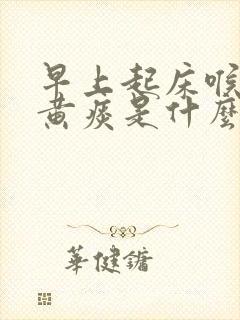 早上起床喉
黄痰是什麼
華健鏞